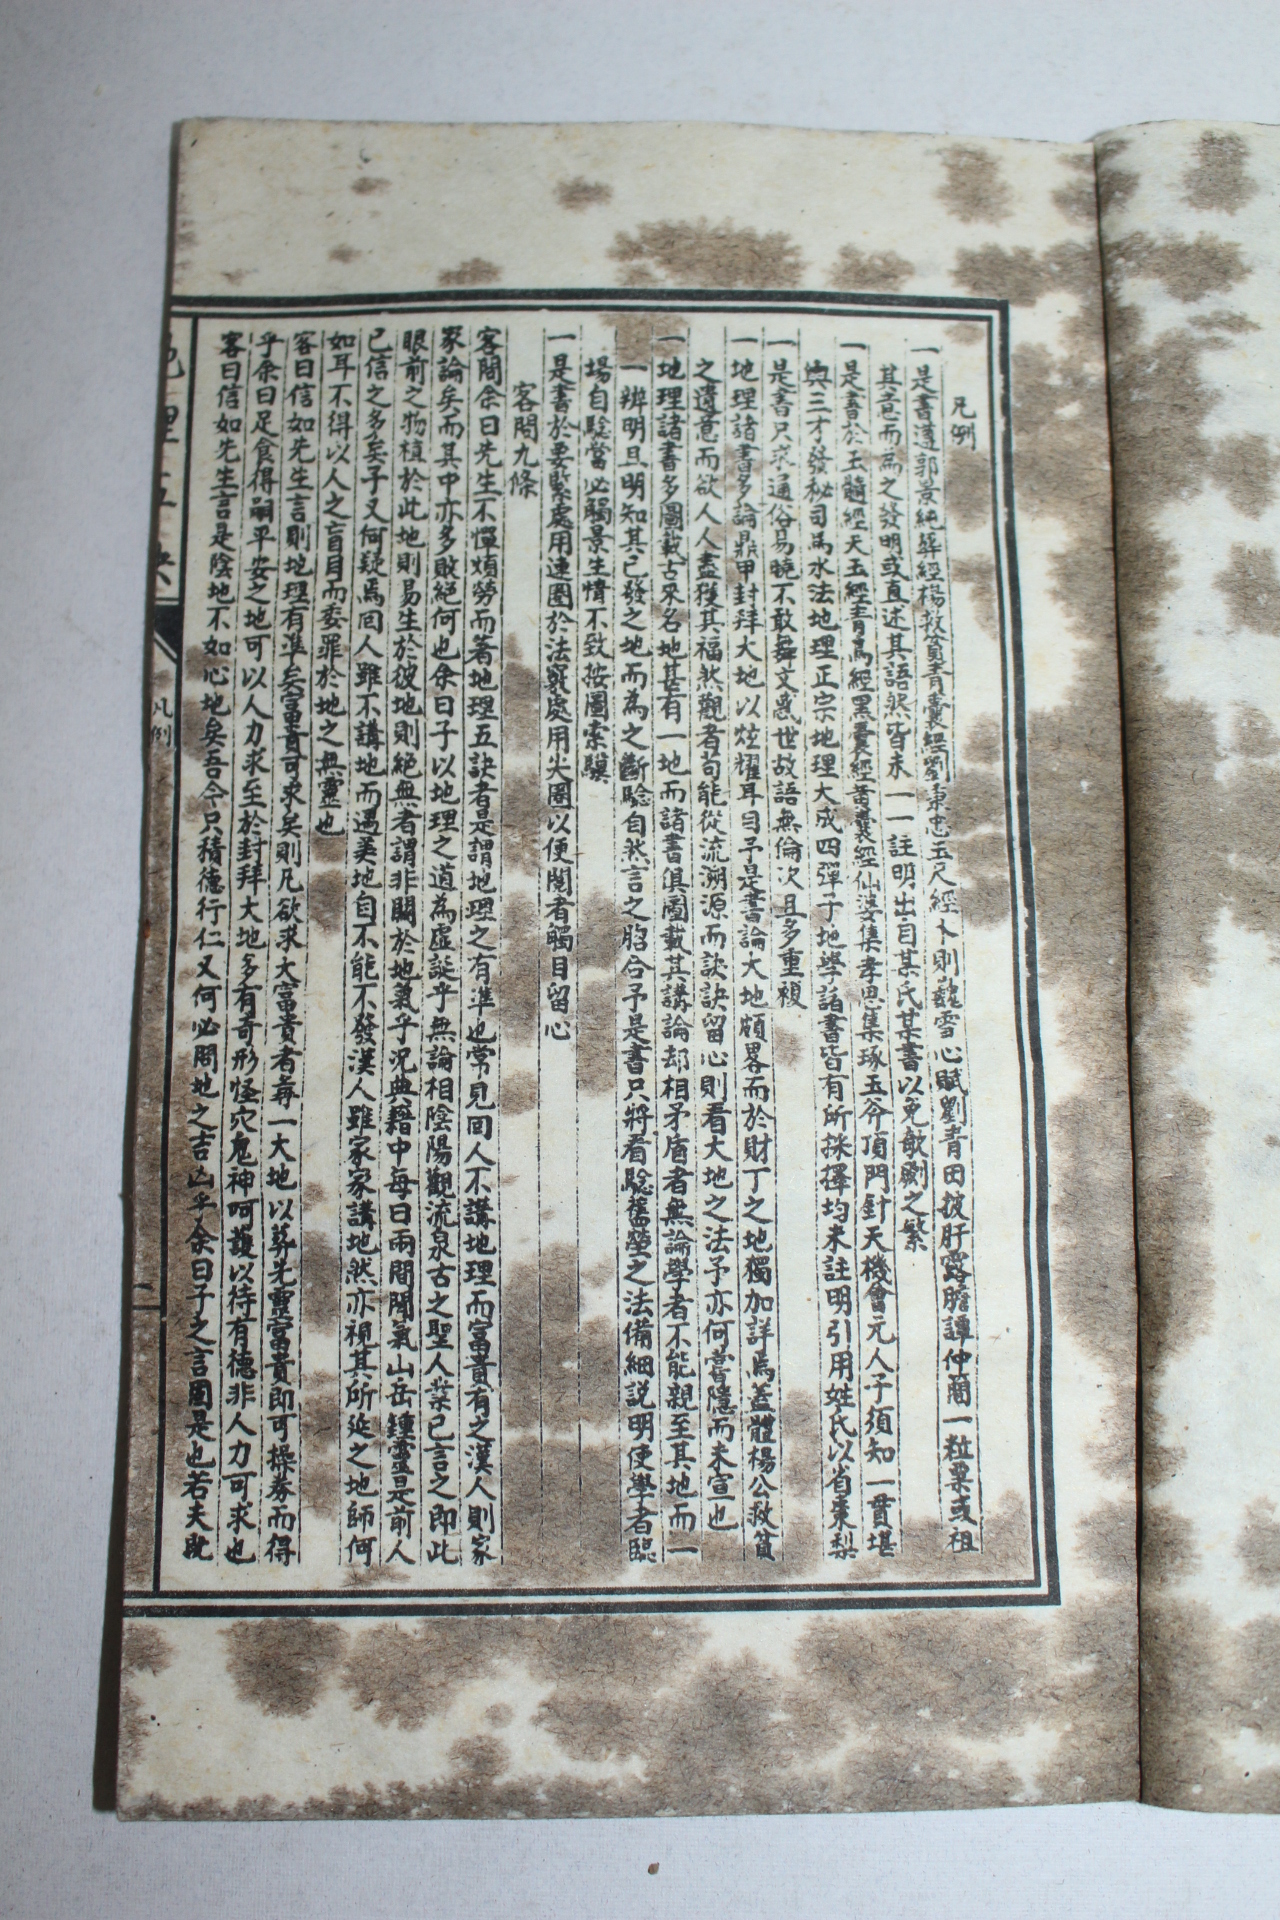 凡例
一是書遵郭景純葬經楊救貧青囊經劉秉忠玉尺經卜則巍雪心賦劉青田披肝露膽譚仲簡一粒粟或祖
其意而為之發明或直述其語然皆未一一註明出自某氏某書以免敏劂之繁
一是書於玉髓經天玉經青烏經黑囊經黃囊經仙婆集孝思集琢玉斧頂門針天機會元人子須知一貫堪
輿三才發秘司馬水法地理正宗地理大成四彈子地學諸書皆有所採擇均未註明引用姓氏以省棗梨
一是書只求通俗易曉不敢舞文惑世故語無倫次且多重複
一地理諸書多論鼎甲封拜大地以炫耀耳目予是書論大地頗畧而於財丁之地獨加詳焉蓋體楊公救貧
之遺意而欲人人盡獲其福然觀者苟能從流溯源而訣訣留心則看大地之法予亦何嘗隱而未宣也
一地理諸書多圖載古來名地甚有一地而諸書俱圖載其講論却相矛盾者無論學者不能親至其地而一
一辨明且明知其已發之地而為之斷驗自然言之脗合予是書只將看驗舊塋之法備細說明使學者臨
場自騐當必觸景生情不致按圖索驥
一是書於要緊處用連圈於法竅處用尖圈以便閱者觸目留心
客問九條
客問余曰先生不憚煩勞而著地理五訣者是謂地理之有準也常見回人不講地理而富貴有之漢人則家
家論矣而其中亦多敗絕何也余曰子以地理之道為虛誕乎無論相陰陽觀流泉古之聖人業已言之即此
眼前之物植於此地則易生於彼地則絕無者謂非關於地氣乎況典籍中每曰雨間間氣山岳鍾靈是前人
已信之多矣子又何疑焉回人雖不講地而遇美地自不能不發漢人雖家家講地然亦視其所延之地師何
如耳不得以人之盲目而委罪於地之無靈也
客曰信如先生言則地理有準矣富貴可求矣則凡欲求大富貴者尋一大地以葬先靈富貴即可操券而得
乎余曰足食得嗣平安之地可以人力求至於封拜大地多有奇形怪穴鬼神呵護以待有德非人力可求也
客曰信如先生言是陰地不如心地矣吾今只積德行仁又何必問地之吉凶乎余曰子之言固是也若夫既
地理五訣
凡例
二